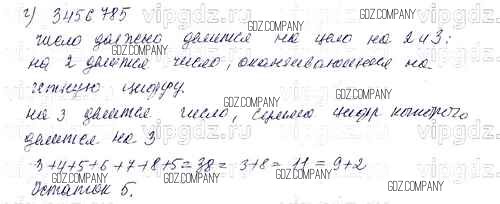 г) 3456785
число должно делится на цело на 2 и 3:
на 2 делится число, оканчивающееся на
четную цифру.
на 3 делится число, сумма цифр которого
делится на 3
3+4+5+6+7+8+5=38= 3+8= 11 = 9+2
Остаток 5.